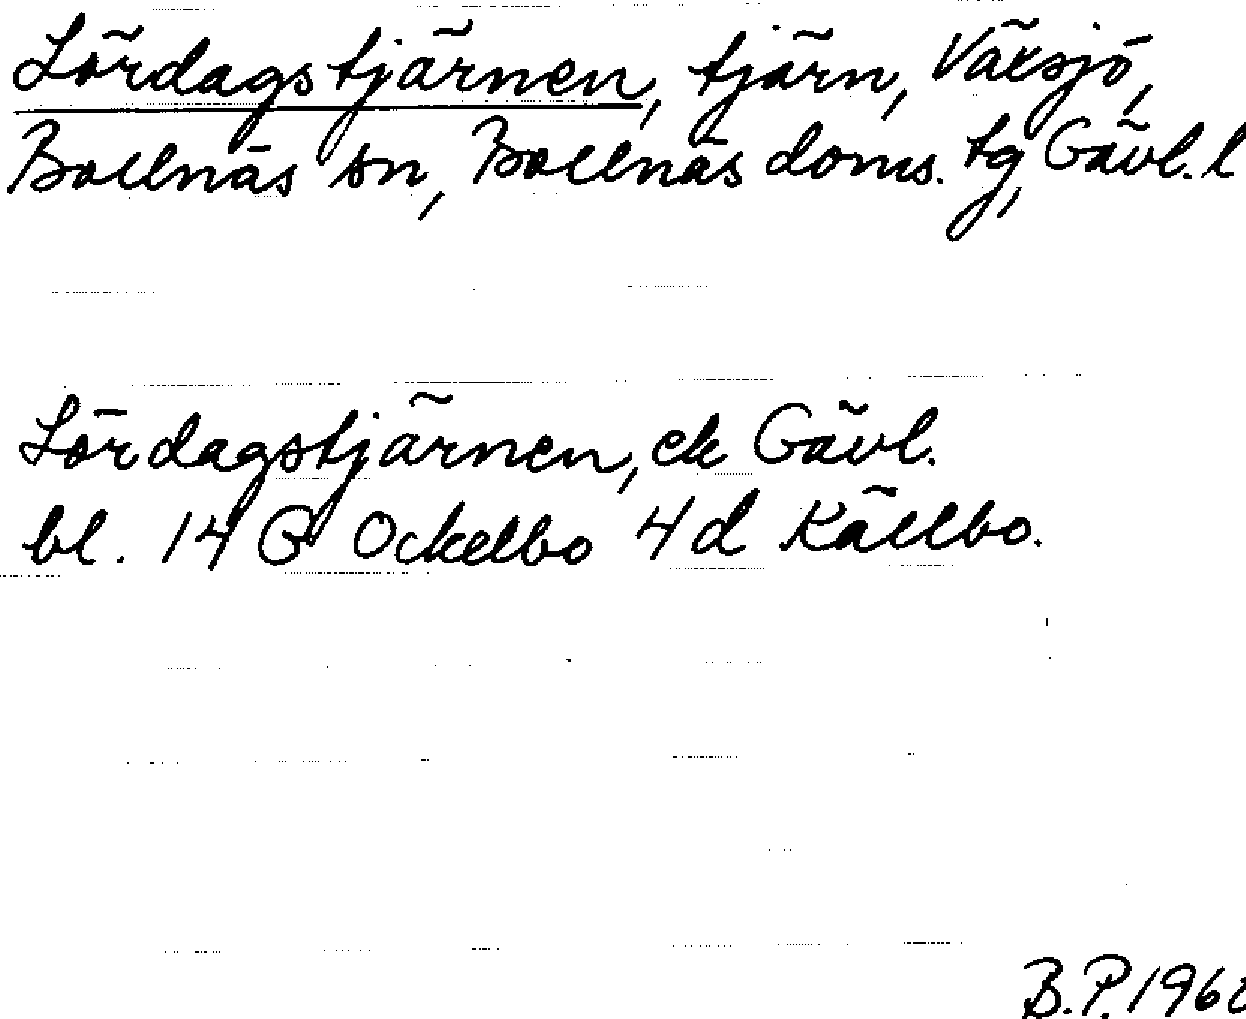 Lördagstjärnen, tjärn, Växsjö,
Bollnäs sn, Bollnäs doms. tg, Gävl. l
Lördagstjärnen, ek Gävl.
bl. 14 G Ockelbo 4d Källbo.
B.P.